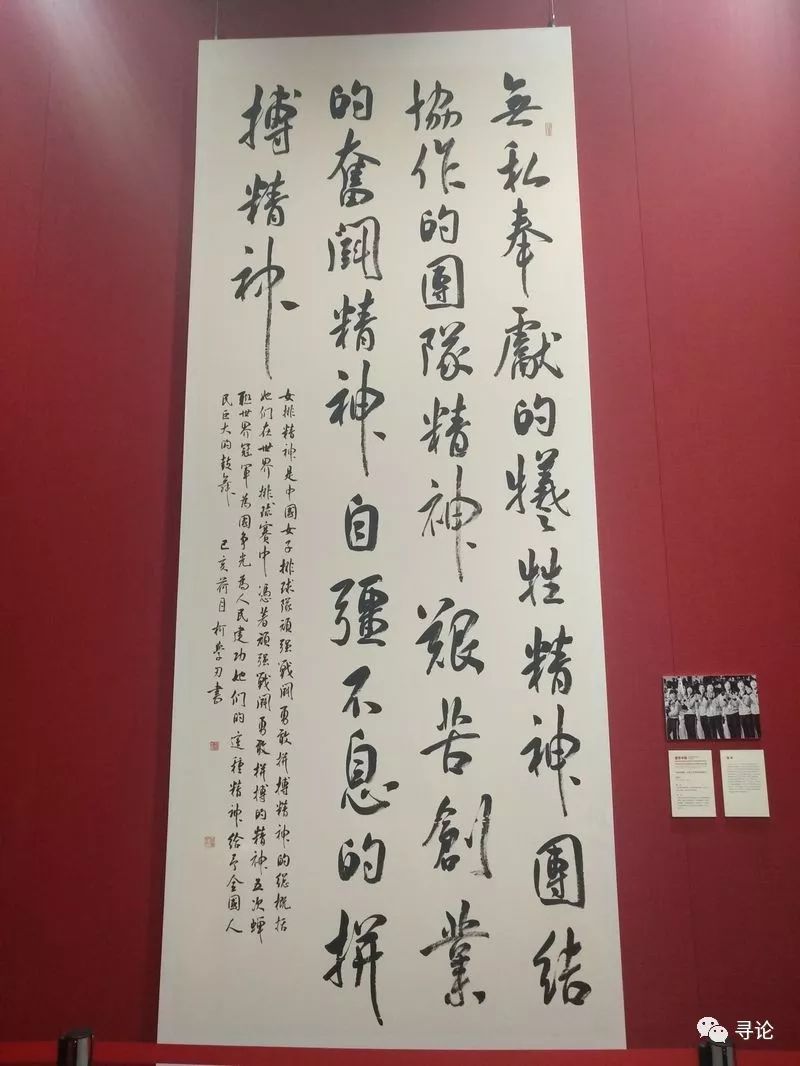 無私奉獻的犧牲精神團結
協作的團隊精神艱苦創業
的奮鬪精神自彊不息的拼
搏精神
女排精神是中國女子排球隊頑强戰鬪勇敢拼搏精神的總概括
她们在世界排球賽中憑著頑强戰鬪勇敢拼搏的精神五次蟬
聯世界冠軍為國争光為人民建功她们的這種精神給予全國人
民巨大的鼓舞
己亥荷月柯學刃書
寻论